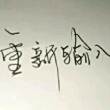 重新输入